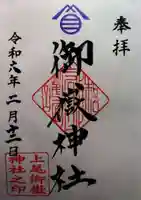 奉拝
御嶽神社
令和六年二月十二日
上尾御嶽
神社之印